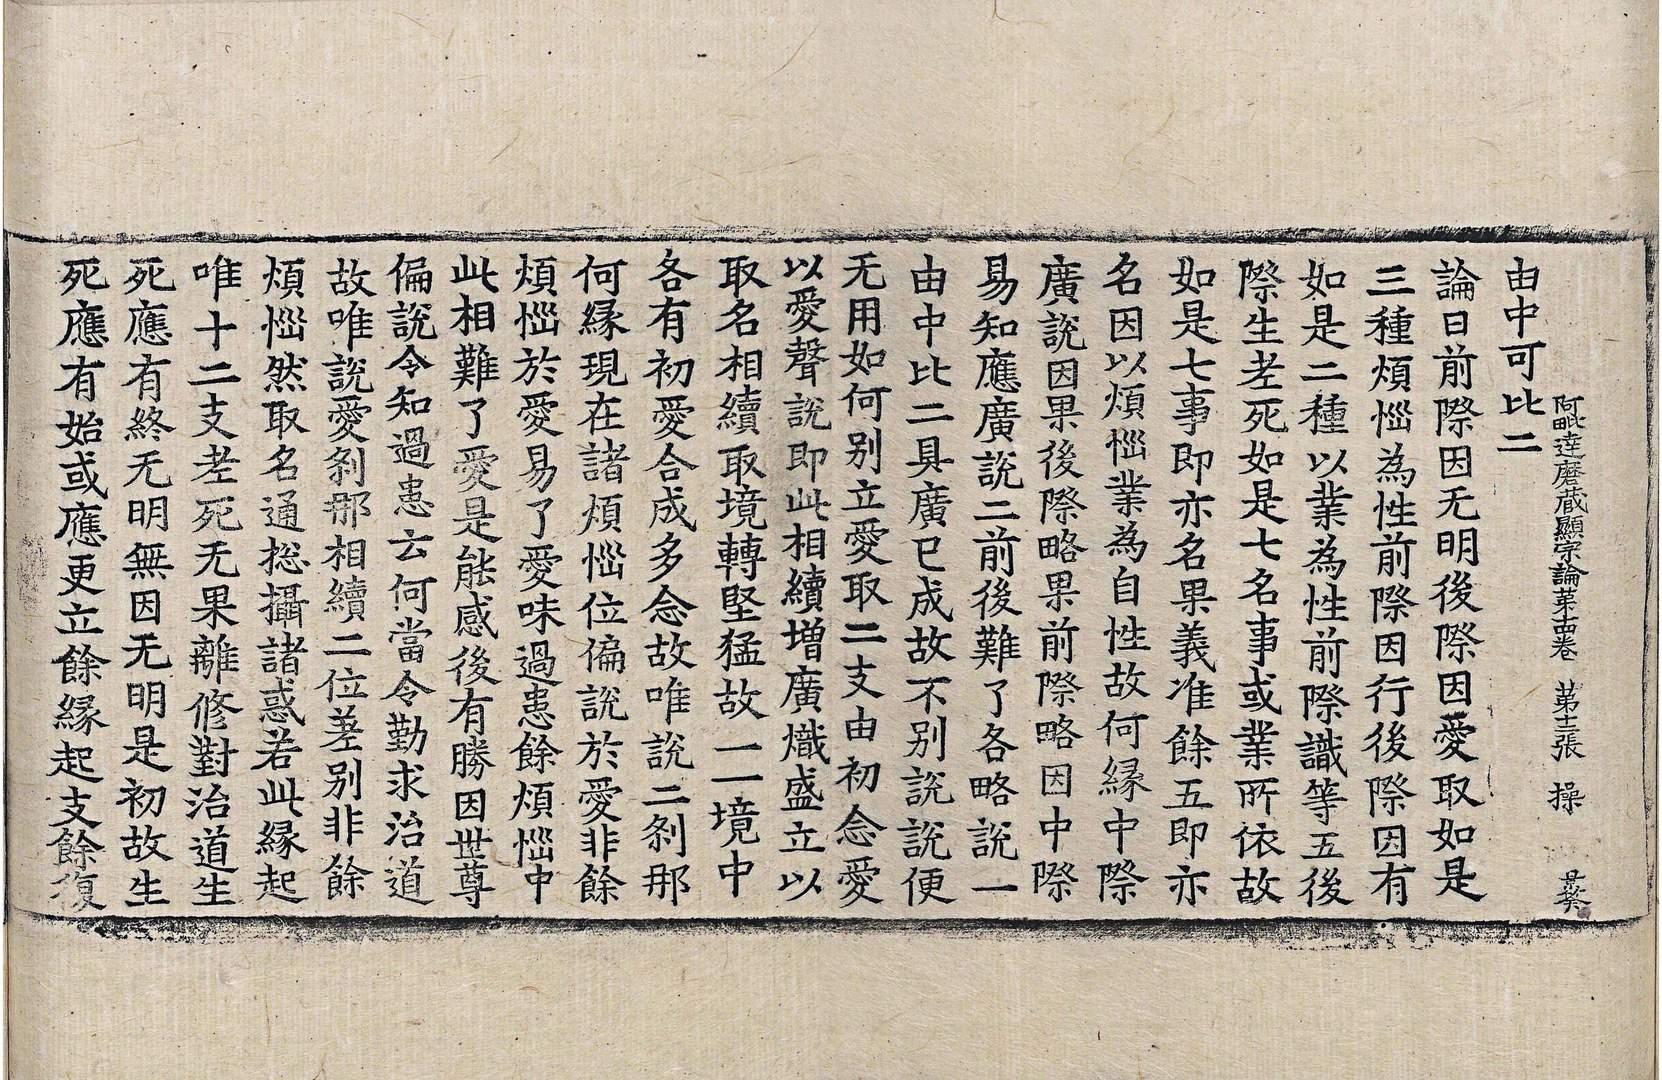 阿毗達磨藏顯宗論第十四卷　第十三張　操
由中可比二
論曰前際因无明後際因愛取如是
三種煩惱為性前際因行後際因有
如是二種以業為性前際識等五後
際生老死如是七名事或業所依故
如是七事即亦名果義准餘五即亦
名因以煩惱業為自性故何緣中際
廣說因果後際略果前際略因中際
易知應廣說二前後難了各略說一
由中比二具廣已成故不別說說便
无用如何別立愛取二支由初念愛
以愛聲說即此相續增廣熾盛立以
取名相續取境轉堅猛故一一境中
各有初愛合成多念故唯說二剎那
何緣現在諸煩惱位偏說於愛非餘
煩惱於愛易了愛味過患餘煩惱中
此相難了愛是能感後有勝因世尊
偏說令知過患云何當令勤求治道
故唯說愛剎那相續二位差別非餘
煩惱然取名通捴攝諸惑若此緣起
唯十二支老死无果離修對治道生
死應有終无明無因无明是初故生
死應有始或應更立餘緣起支餘復